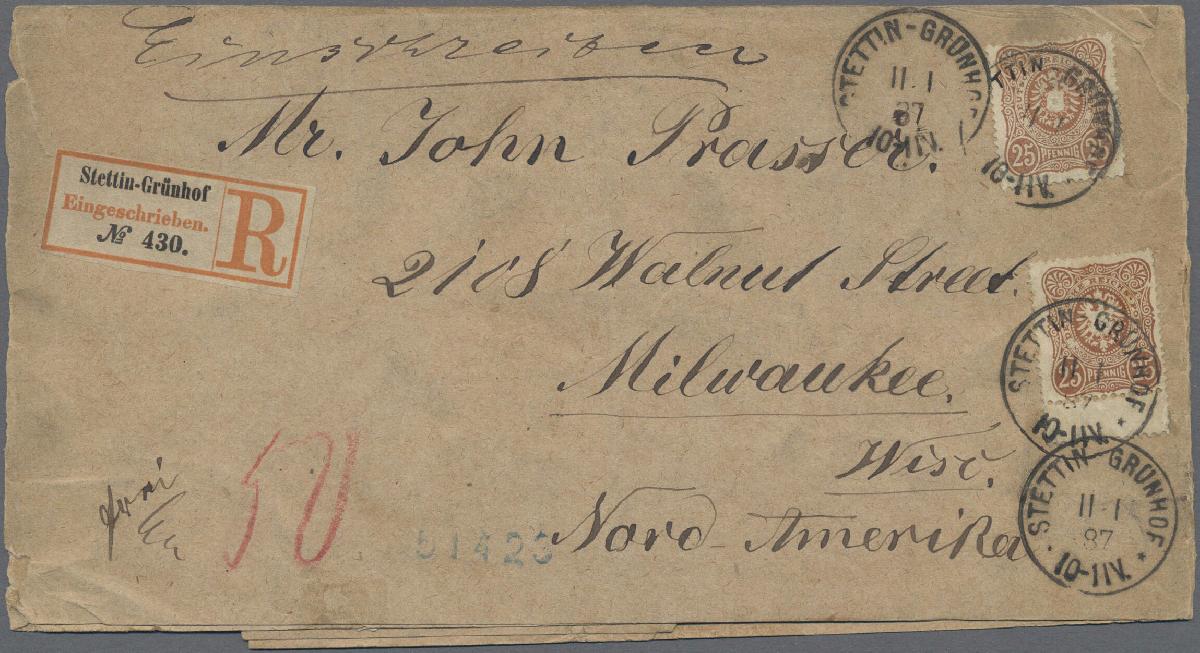 Einschreiben
Mr. John Prasser.
2108 Walnut Street.
Milwaukee.
Wisc.
Nord-Amerika
Stettin-Grünhof
Eingeschrieben.
№ 430.
R
STETTIN-GRÜNHOF
11.1
87
10-11V.
TTIN-GRÜNHOF
10-11V.
25 PFENNIG 25
STETTIN-GRÜNHOF *
11.1
87
10-11V.
25 PFENNIG 25
STETTIN-GRÜNHOF *
11.1
87
10-11V.
frei
50
51423